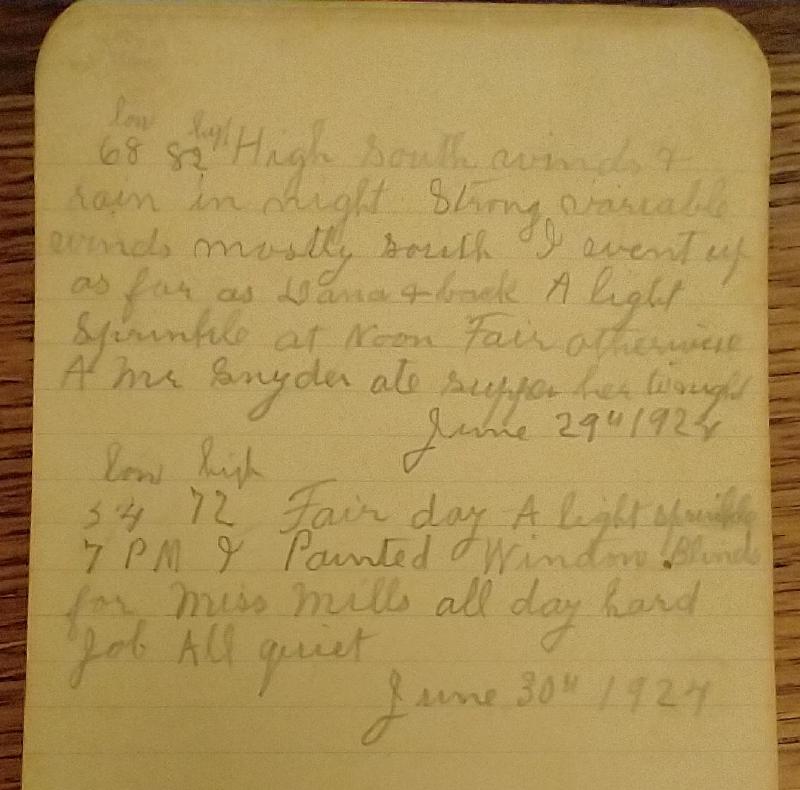 low high
68 82 High South winds &
rain in night Strong variable
winds mostly south I went up
as far as Dana & back A light
Sprinkle at Noon Fair otherwise
A Mr Snyder ate supper her tonight
June 29" 1924
low high
54 72 Fair day A light sprinkle
7 PM I Painted Window Blinds
for Miss Mills all day hard
Job All quiet
June 30" 1924